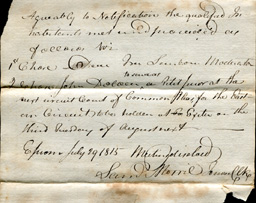 Agreeably to Notification the qualified In
habitants met and proceeded as
follows Viz
1st Chose Moderator
2 Chose John a Petit juror at the
next circuit Court of Common Pleas for the East
ern Circuit to be holden at Exeter on the
third Tuesday of August next
Epsom July 29 1815 Meeting dissolved
Morril Town Clk